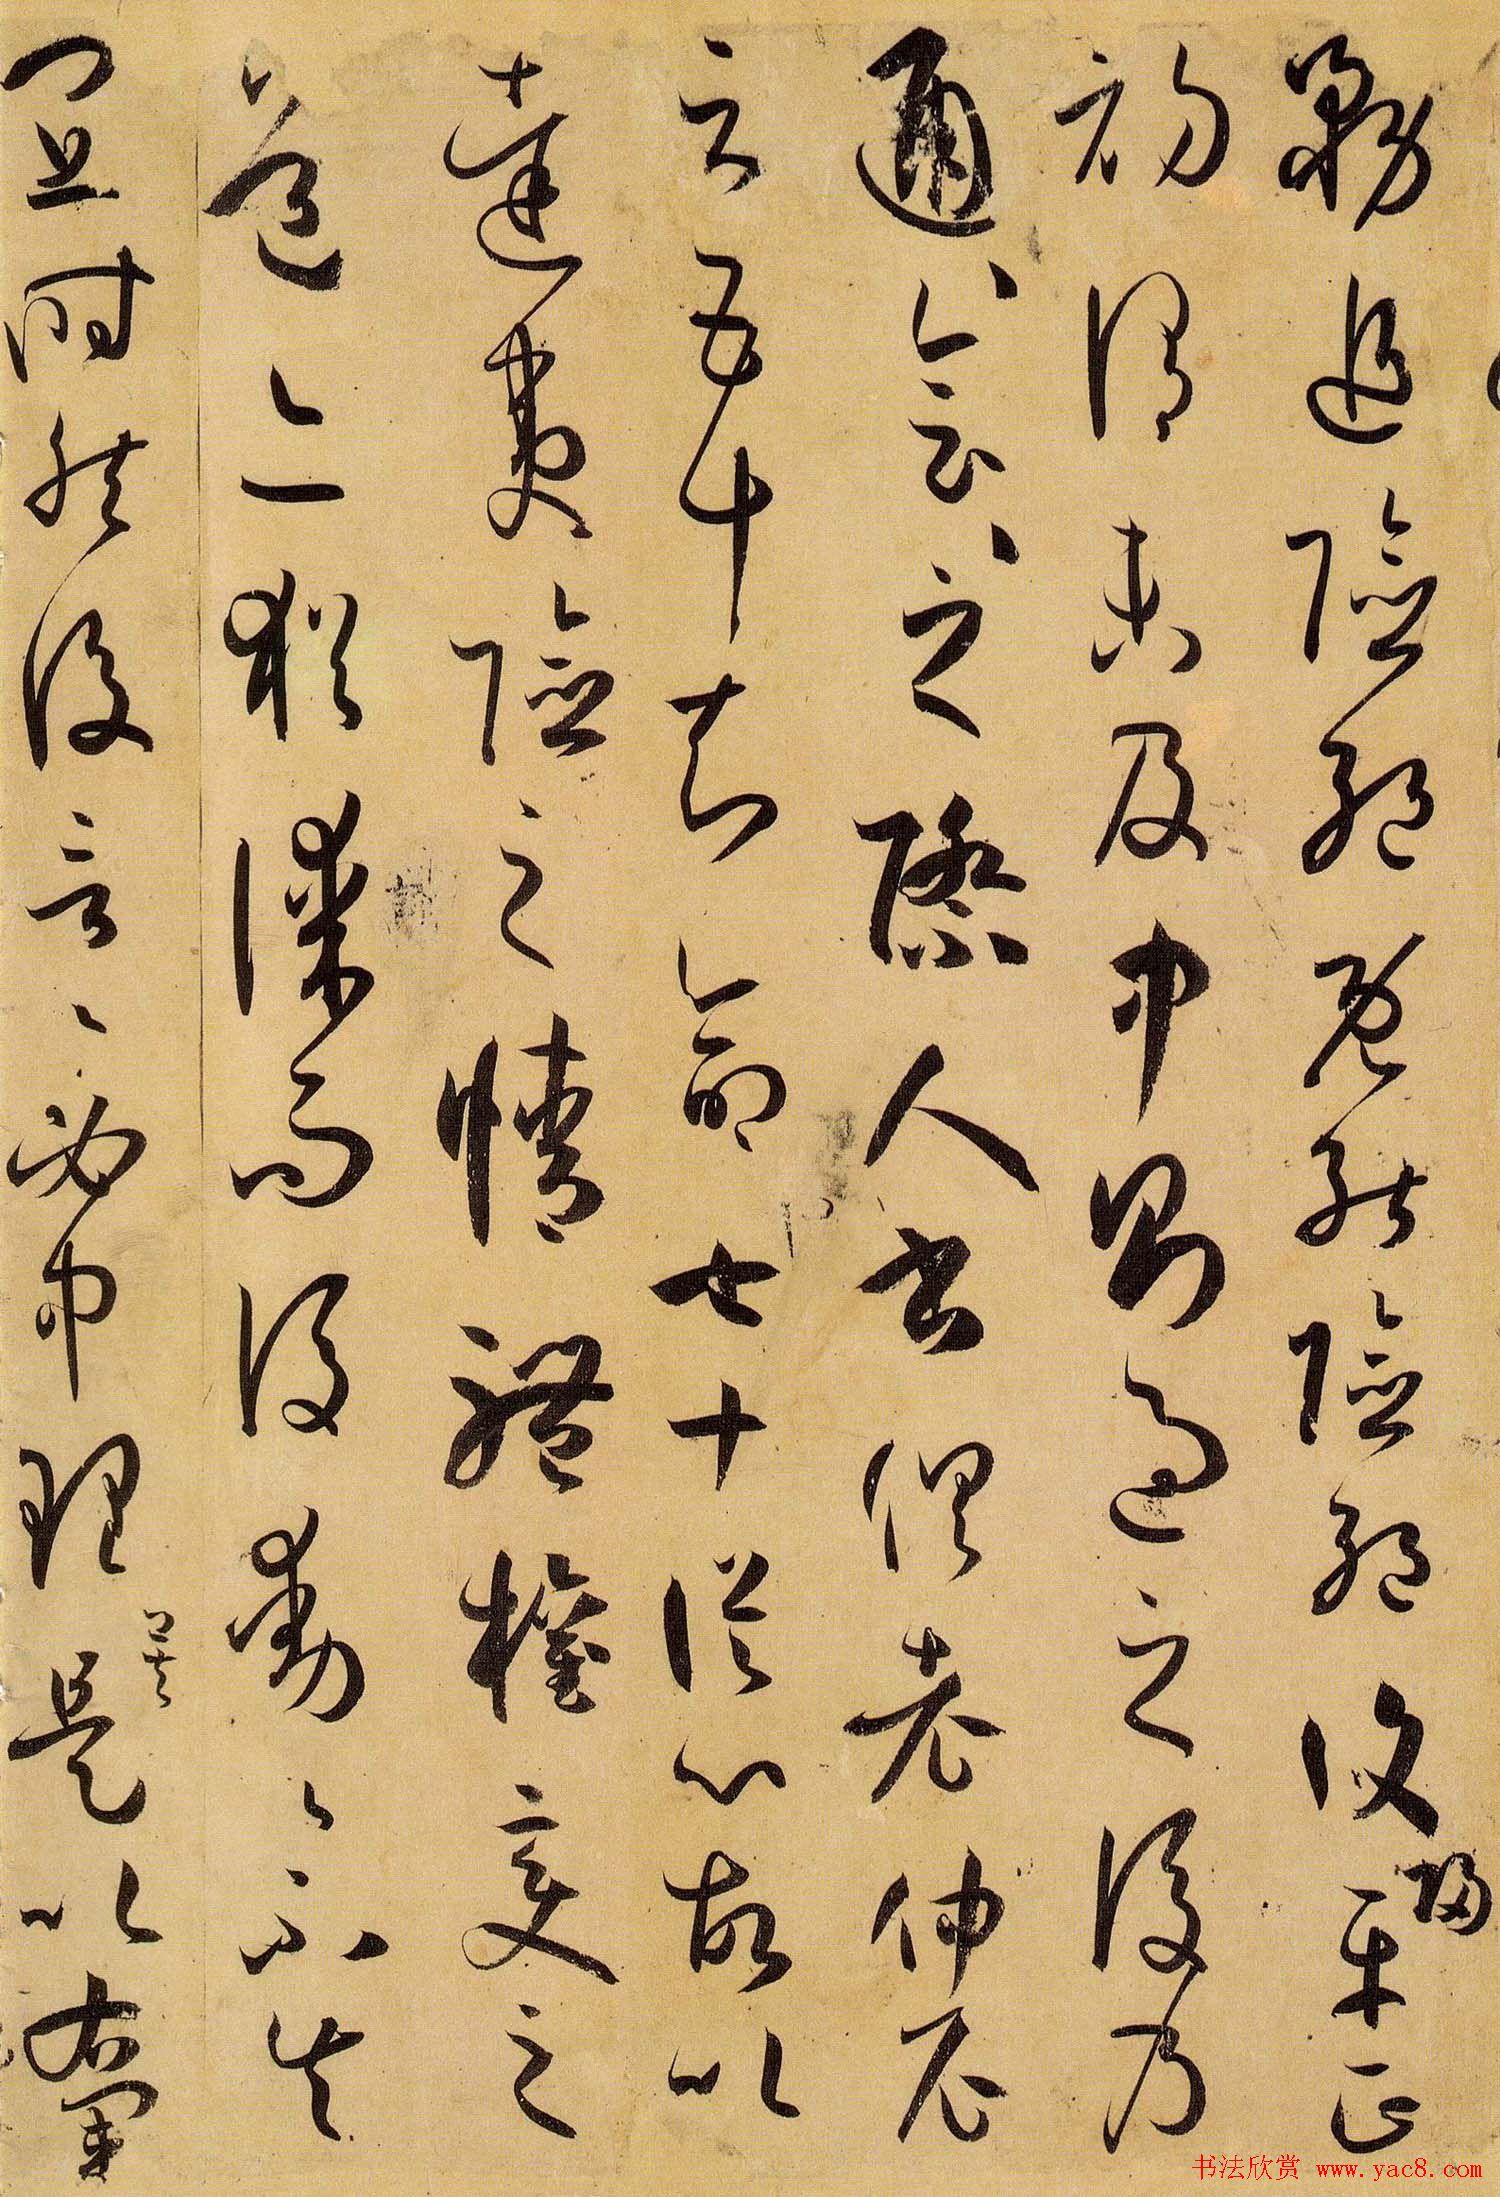 務追險絕既能險絕復歸平正
初謂未及中則過之後乃
通會通會之際人書俱老仲尼
云五十知命七十從心故以
達夷險之情體權變之
道亦猶謀而後動動不失
宜時然後言言必中理矣是以右軍
书法欣赏 www.yac8.com